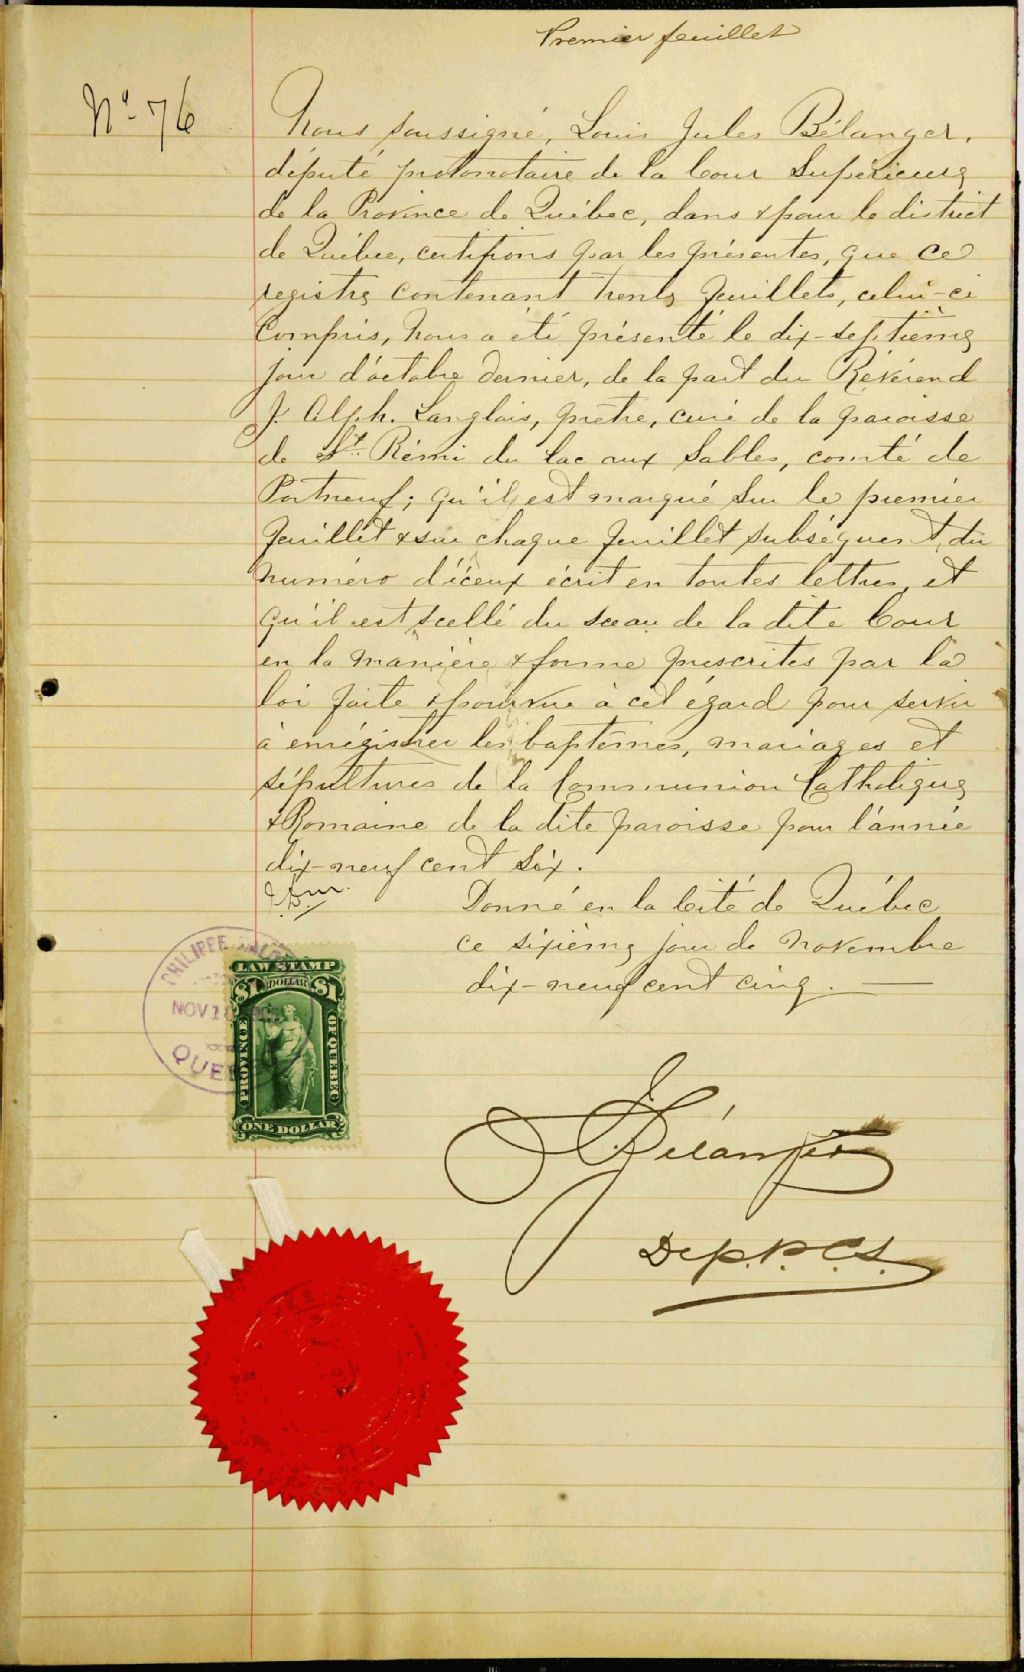 Premier feuillet
No. 76
Nous soussigné, Louis Jules Bélanger,
député protonotaire de la Cour Supérieure
de la Province de Québec, dans & pour le district
de Québec, certifions par les présentes, que ce
registre contenant trente feuillets, celui-ci
compris, nous a été présenté le dix-septième
jour d'octobre dernier, de la part du Révérend
J. Alph. Langlais, prêtre, curé de la paroisse
de St. Rémi du lac aux Sables, comté de
Portneuf; qu'il est marqué sur le premier
feuillet & sur chaque feuillet subséquent, du
numéro d'iceux écrit en toutes lettres, et
qu'il est scellé du sceau de la dite Cour
en la manière & forme prescrites par la
loi faite & pourvue à cet égard pour servir
à enrégistrer les baptêmes, mariages et
sépultures de la Communion Catholique
& Romaine de la dite paroisse pour l'année
dix-neuf cent six.
Donné en la Cité de Québec
ce sixième jour de novembre
dix-neuf cent cinq.
PHILIPPE
NOV 1
QUE
LAW STAMP
$1 DOLLAR $1
PROVINCE
OF QUEBEC
ONE DOLLAR
Bélanger
Dep. P. C. S.